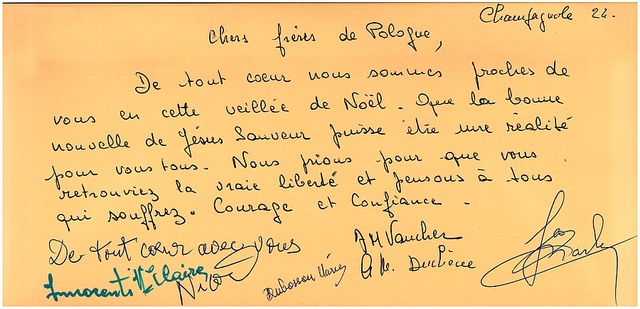 Champagnole 24.
Chers frères de Pologne,
De tout coeur nous sommes proches de
vous en cette veillée de Noël. Que la bonne
nouvelle de Jésus Sauveur puisse être une réalité
pour vous tous. Nous prions pour que vous
retrouviez la vraie liberté et pensons à tous
qui souffrez. Courage et Confiance.
De tout coeur avec vous
JM Vaucher
Innocenti Claire